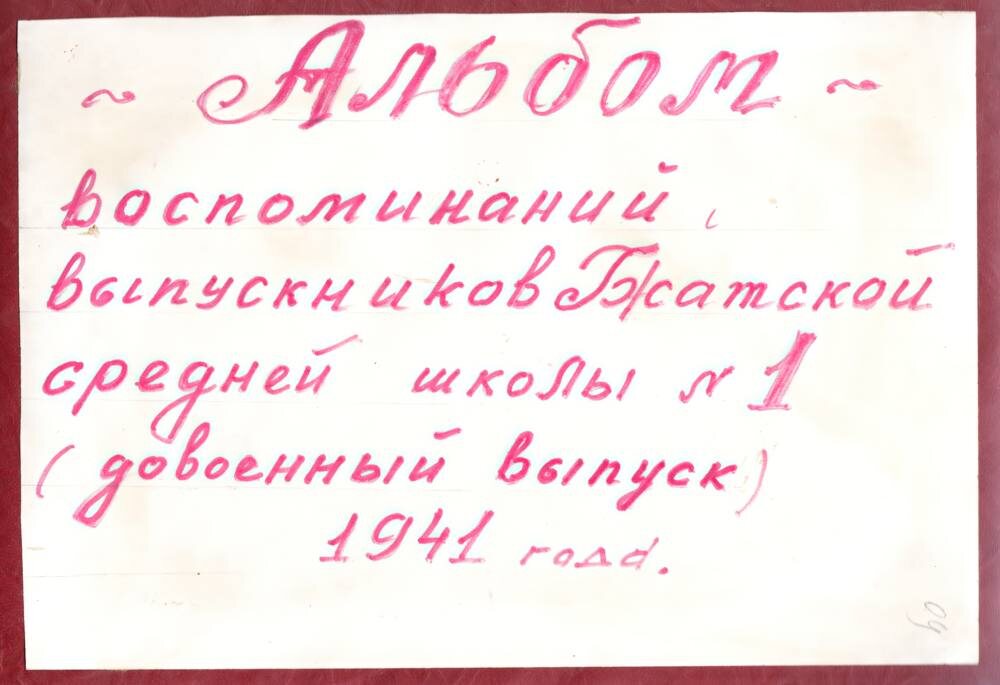 ~ Альбом ~
воспоминаний
выпускников Гжатской
средней школы № 1
( довоенный выпуск)
1941 года.